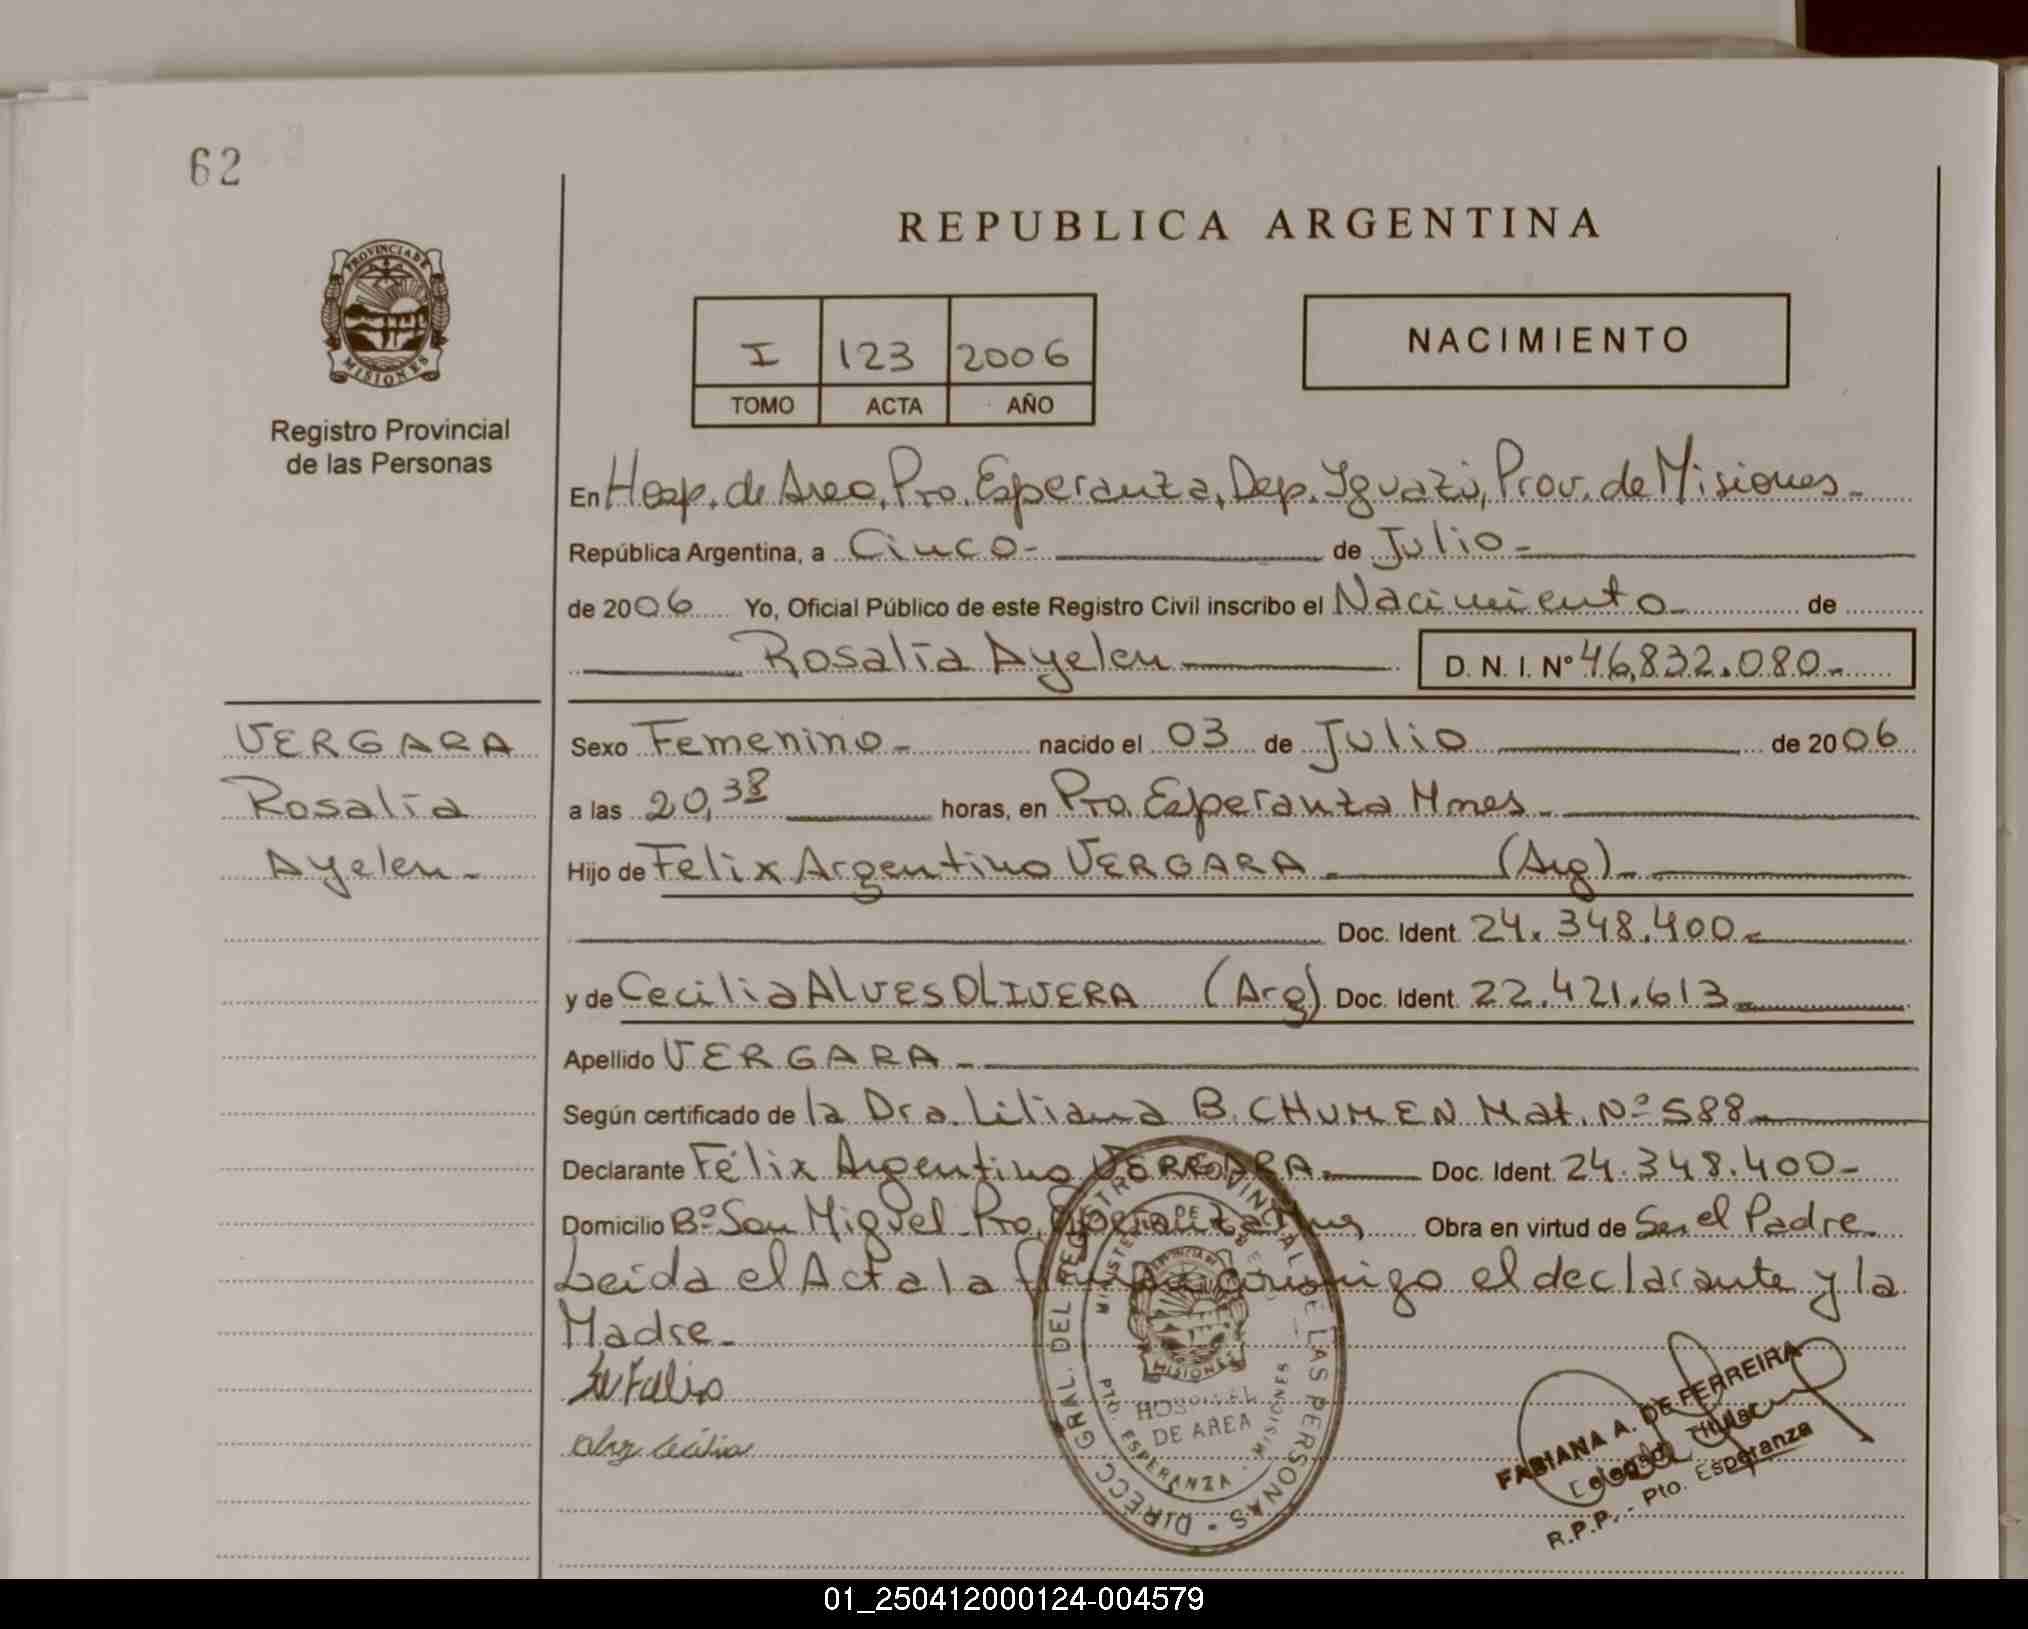 62
REPUBLICA ARGENTINA
PROVINCIA DE
MISIONES
Registro Provincial
de las Personas
I 123 2006
TOMO ACTA AÑO
NACIMIENTO
En Hosp. de Area, Pto. Esperanza, Dep. Iguazú, Prov. de Misiones
República Argentina, a Cinco de Julio
de 2006 Yo, Oficial Público de este Registro Civil inscribo el Nacimiento de
Rosalía Ayelen D. N. I. Nº 46,832.080
VERGARA
Rosalía
Ayelen
Sexo Femenino nacido el 03 de Julio de 2006
a las 20,38 horas, en Pto. Esperanza Mnes
Hijo de Felix Argentino VERGARA (Arg)
Doc. Ident. 24.348.400
y de Cecilia ALVES OLIVERA (Arg) Doc. Ident. 22.421.613
Apellido VERGARA
Según certificado de la Dra. Liliana B. CHUMEN Mat. Nº 588
Declarante Félix Argentino Doc. Ident. 24.348.400
Domicilio Bº San Miguel Pto. Esperanza Obra en virtud de Ser el Padre
Leída el Acta la conmigo el declarante y la
Madre
Cecilia
DIRECC GRAL. DEL REGISTRO PROVINCIAL DE LAS PERSONAS
PROVINCIA DE
MISIONES
HOSPITAL
DE AREA
PTO. ESPERANZA - MISIONES
FABIANA A. DE FERREIRA
Titular
R.P.P. - Pto. Esperanza
01_250412000124-004579